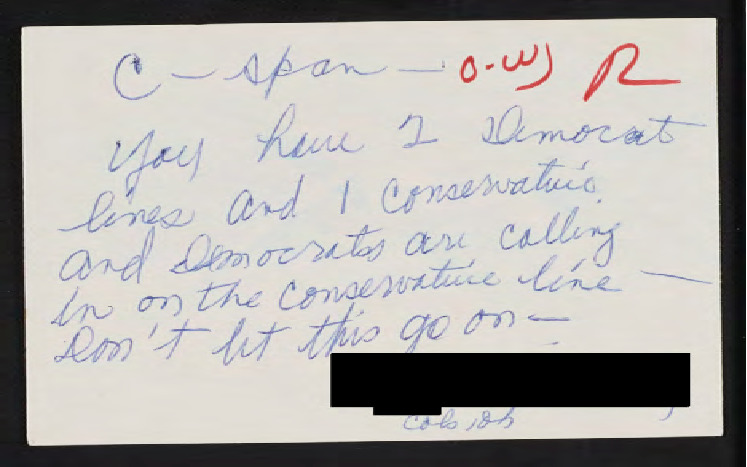 C - span - O-W) R
You have 2 Democrat
lines and 1 conservative
and Democrats are calling
in on the conservative line —
Don't let this go on —
Cols, Oh